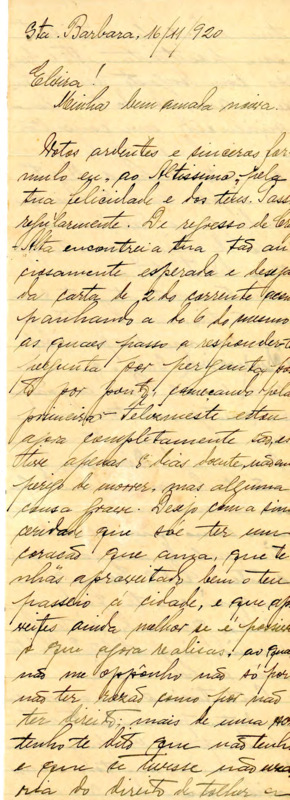 Sta. Barbara, 16/11/920
Elvira!
Minha bem amada noiva.
Votos ardentes e sinceros for-
mulo eu, ao Altissimo, pela
tua felicidade e dos teus. Passo
regularmente. De regresso de Cruz
Alta encontrei a tua tão an
ciosamente esperada e deseja
da carta de 2 do corrente acom
panhando a de 6 do mesmo
as quaes passo a responder-te
pergunta por pergunta pon
to por ponto, começando pela
primeira - Felizmente estou
agora completamente são, es
tive apenas 5 dias doente, não em
perigo de morrer, mas alguma
cousa grave. Desejo com a sin
ceridade que sóe ter um
coração que ama, que te
nhas aproveitado bem o teu
passeio á cidade, e que apro
veites ainda melhor se é possivel
o que agora realisas: ao qual
não me opponho não só por
não ter razão como por não
ter direito: mais de uma vez
tenho te dito que não tenho
e que se tivesse não usa
ria do direito de tolher a